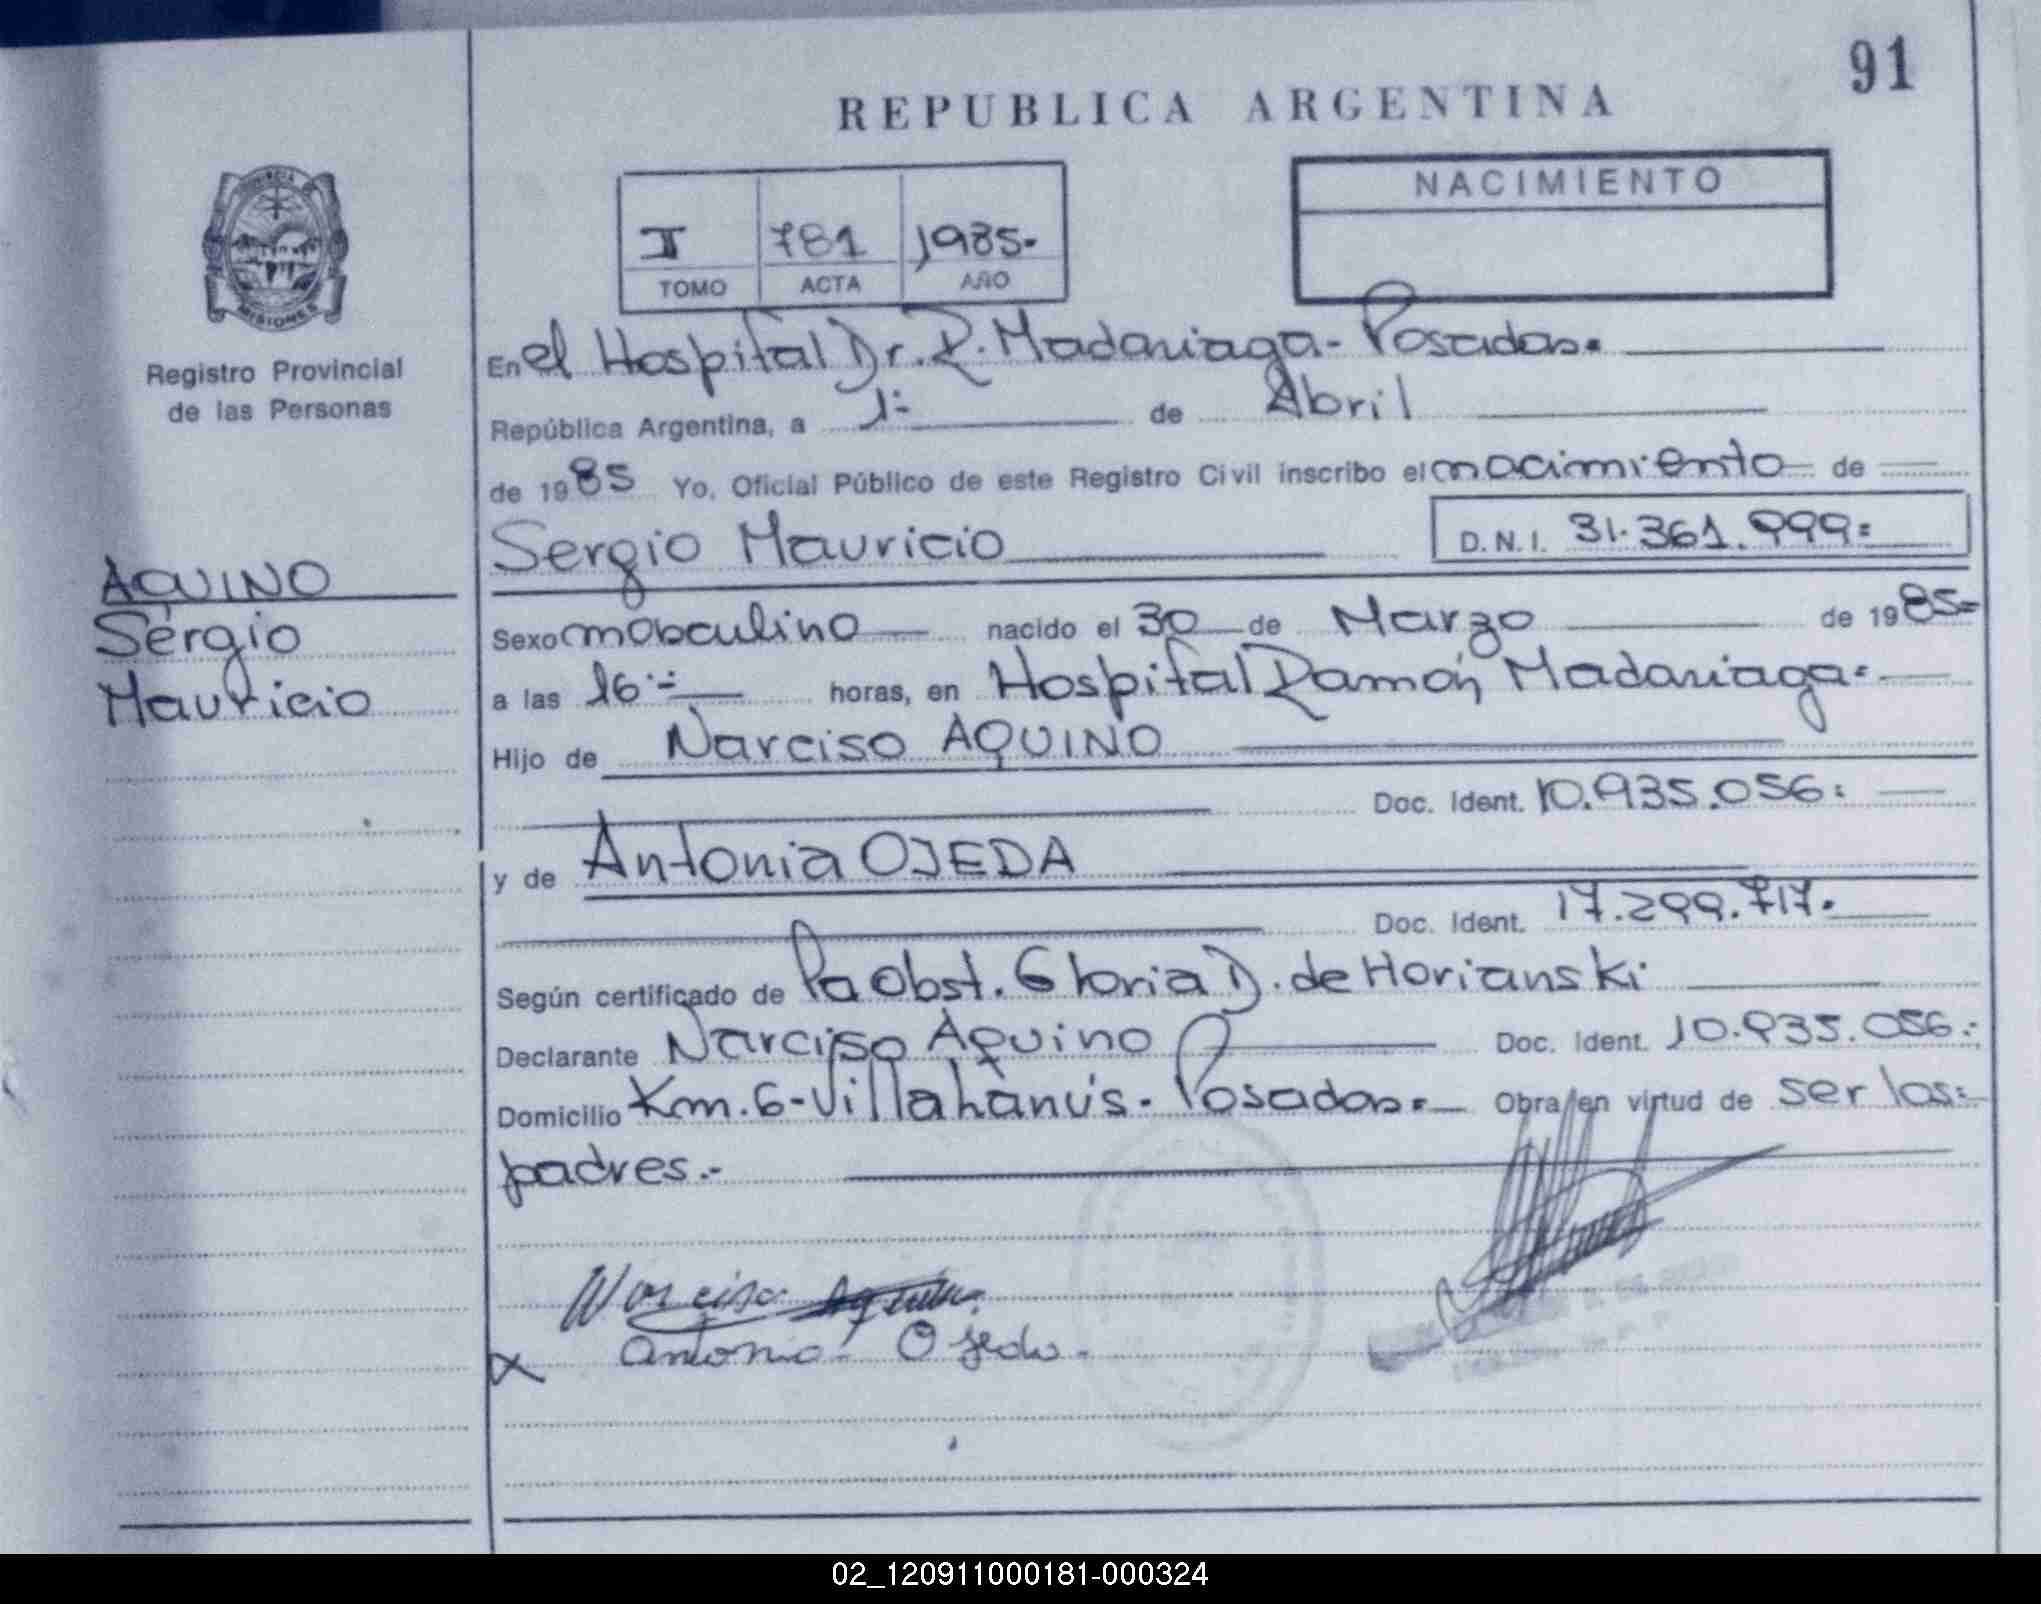 91
REPUBLICA ARGENTINA
PROVINCIA
MISIONES
Registro Provincial
de las Personas
I 781 1985.
TOMO ACTA AÑO
NACIMIENTO
En el Hospital Dr. R. Madariaga - Posadas.
República Argentina, a 1º de Abril
de 1985 Yo, Oficial Público de este Registro Civil inscribo el nacimiento de
Sergio Mauricio D.N.I. 31.361.999=
AQUINO
Sergio
Mauricio
Sexo masculino nacido el 30 de Marzo de 1985=
a las 16:- horas, en Hospital Ramón Madariaga.
Hijo de Narciso AQUINO
Doc. Ident. 10.935.056:
y de Antonia OJEDA
Doc. Ident. 17.299.717.
Según certificado de Pa Obst. Gloria D. de Horianski
Declarante Narciso Aquino Doc. Ident. 10.935.056:
Domicilio Km. 6 - Villa Lanús - Posadas. Obra en virtud de ser los:
padres.-
Narciso Aquino
x Antonia Ojeda.
02_120911000181-000324